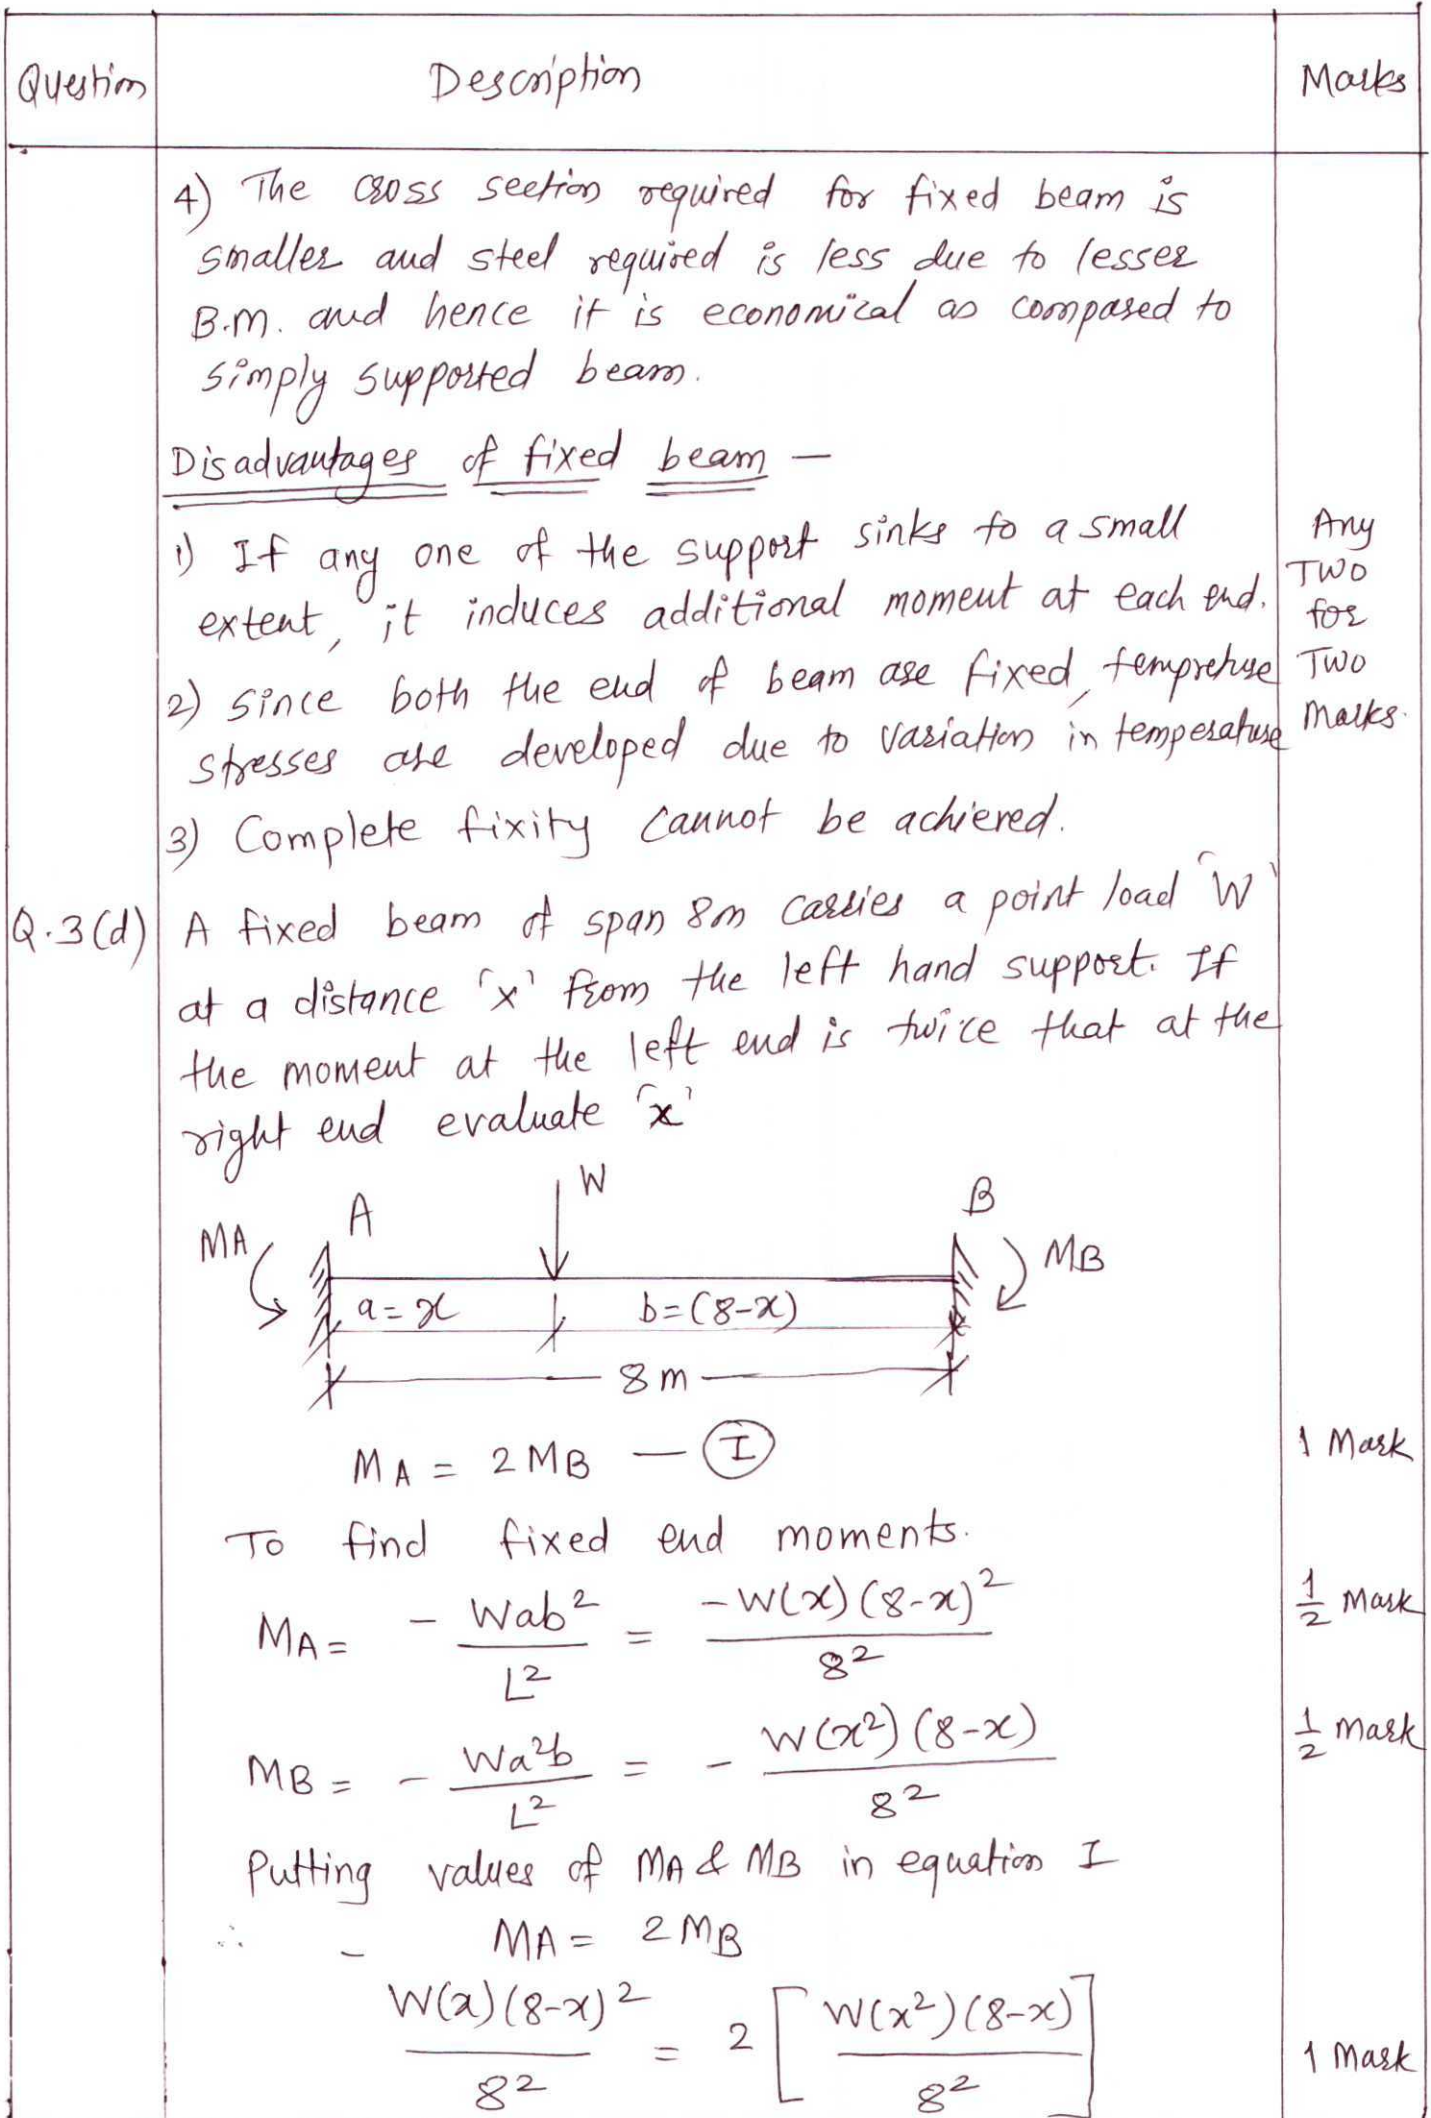 Question Description Marks
4) The cross section required for fixed beam is
smaller and steel required is less due to lesser
B.M. and hence it is economical as compared to
simply supported beam.
Disadvantages of fixed beam –
1) If any one of the support sinks to a small
extent, it induces additional moment at each end.
2) Since both the end of beam are fixed, tempreture
stresses are developed due to variation in temperature
3) Complete fixity cannot be achieved.
Any
Two
for
Two
Marks.
Q.3(d) A fixed beam of span 8m carries a point load 'W'
at a distance 'x' from the left hand support. If
the moment at the left end is twice that at the
right end evaluate 'x'
W
A B
MA MB
a = x b = (8-x)
8 m
MA = 2 MB — (I) 1 Mark
To find fixed end moments.
MA = - Wab²/L² = -W(x)(8-x)²/8² 1/2 Mark
MB = - Wa²b/L² = - W(x²)(8-x)/8² 1/2 Mark
Putting values of MA & MB in equation I
∴ – MA = 2 MB
W(x)(8-x)²/8² = 2 [W(x²)(8-x)/8²] 1 Mark